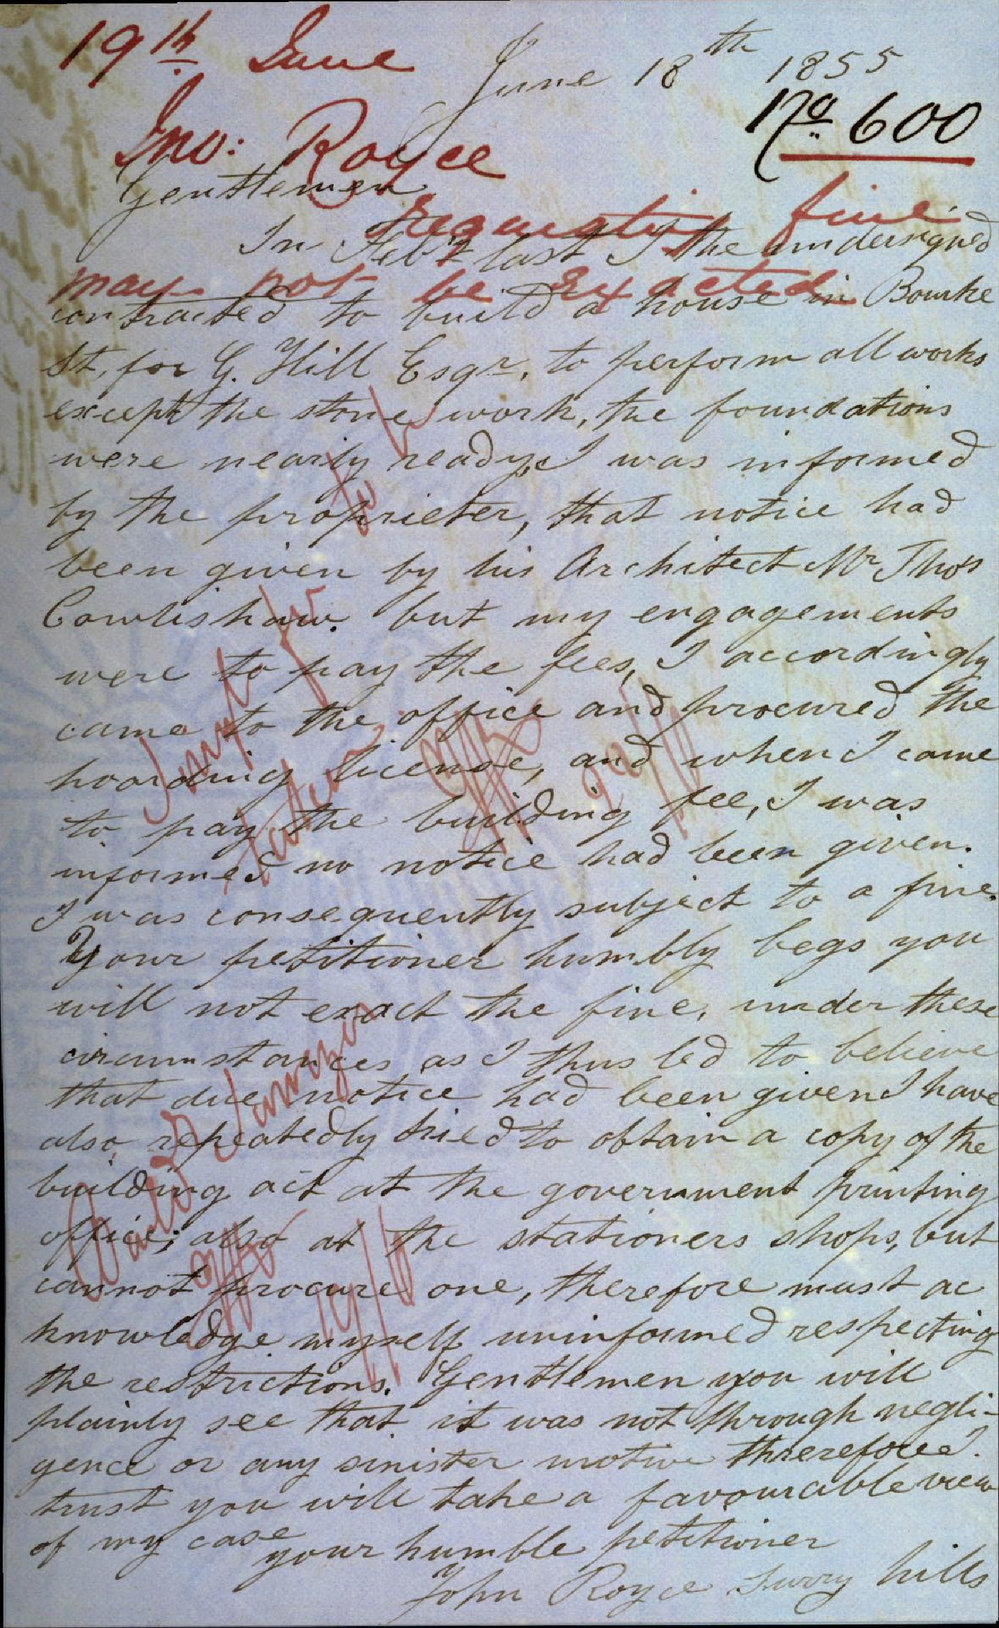 19th June
June 18th 1855
No 600
Jno: Royce
Gentlemen
requesting fine
In Feby last I the undersigned
may not be exacted
contracted to build a house in Bourke
St, for G. Hill Esqr, to perform all works
except the stone work, the foundations
were nearly ready, I was informed
by the proprieter, that notice had
been given by his Architect Mr Thos
Cowlishaw. but my engagements
were to pay the fees, I accordingly
came to the office and procured the
hoarding license, and when I came
to pay the building fee, I was
informed no notice had been given.
I was consequently subject to a fine.
Your petitioner humbly begs you
will not exact the fine, under these
circumstances as I thus led to believe
that due notice had been given I have
also repeatedly tried to obtain a copy of the
building act at the government printing
office; also at the stationers shops, but
cannot procure one, therefore must ac
knowledge myself uninformed respecting
the restrictions. Gentlemen you will
plainly see that it was not through negli-
gence or any sinister motive therefore I
trust you will take a favourable view
of my case
your humble petitioner
John Royce Surry hills
19/6